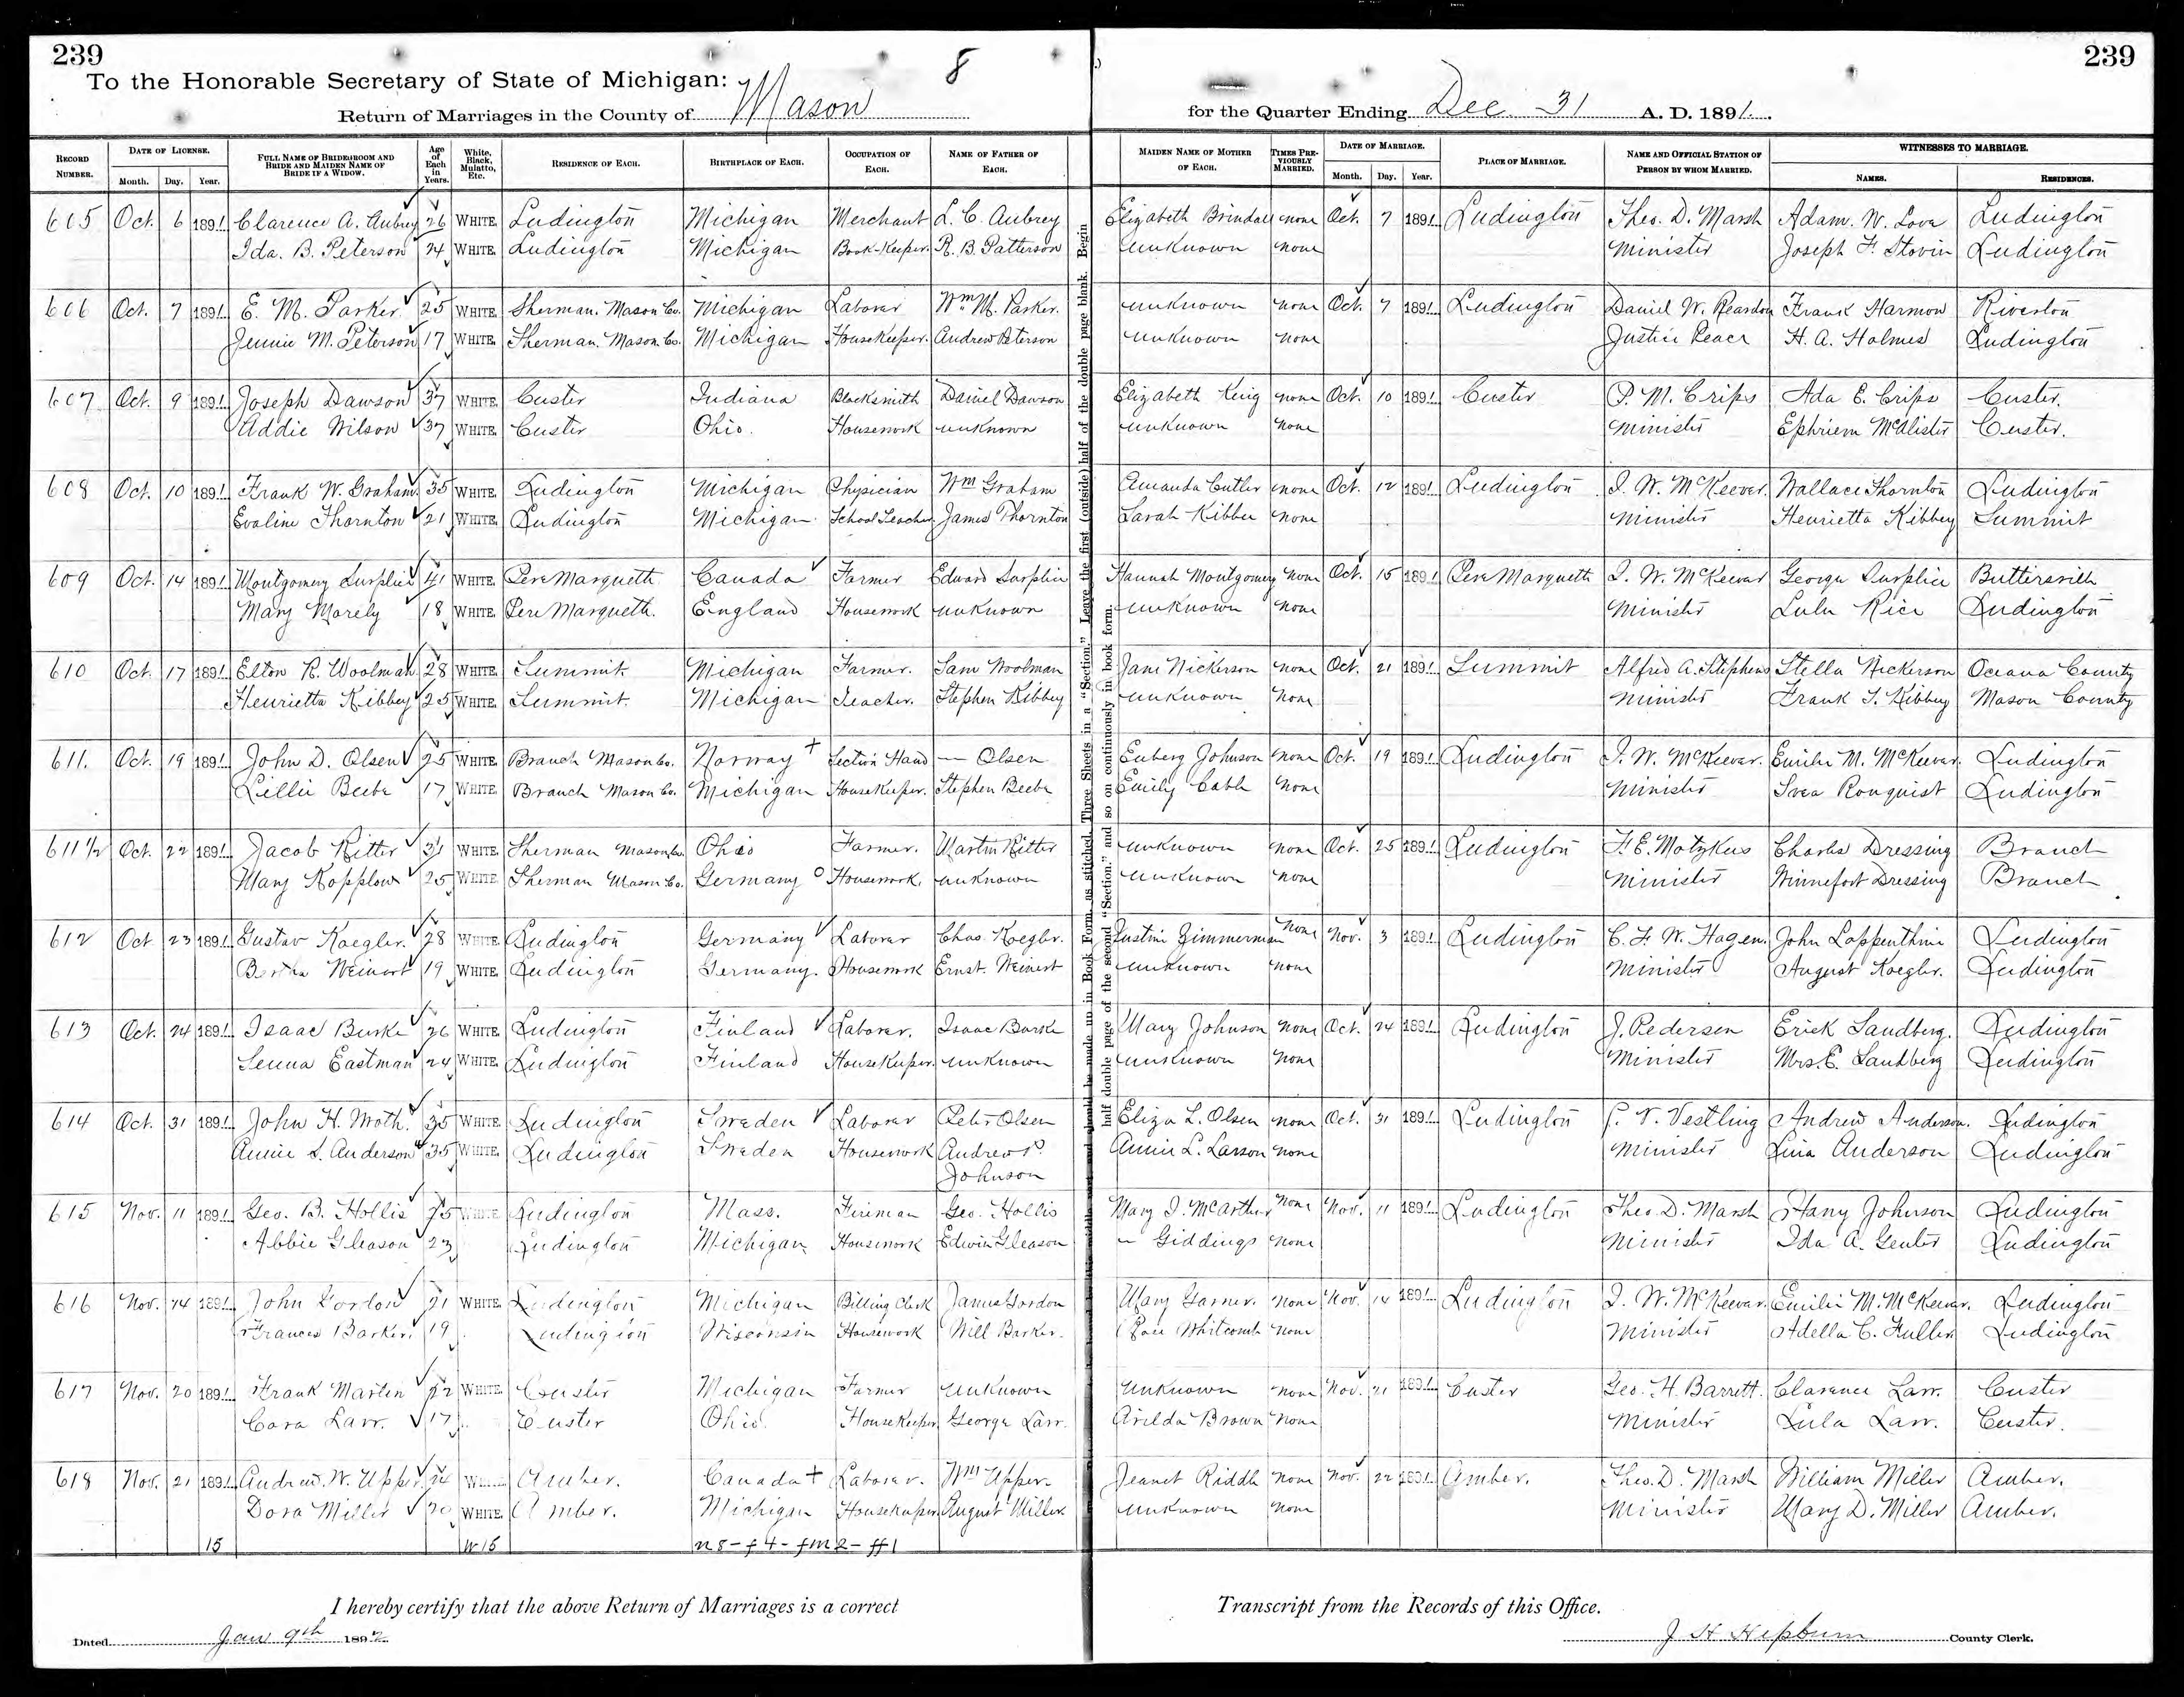 239
239
To the Honorable Secretary of State of Michigan:
8
Return of Marriages in the County of Mason
for the Quarter Ending Dec 31 A. D. 1891.
RECORD NUMBER. DATE OF LICENSE. Month. Day. Year. FULL NAME OF BRIDEGROOM AND BRIDE AND MAIDEN NAME OF BRIDE IF A WIDOW. Age of Each in Years. White, Black, Mulatto, Etc. RESIDENCE OF EACH. BIRTHPLACE OF EACH. OCCUPATION OF EACH. NAME OF FATHER OF EACH. MAIDEN NAME OF MOTHER OF EACH. TIMES PREVIOUSLY MARRIED. DATE OF MARRIAGE. Month. Day. Year. PLACE OF MARRIAGE. NAME AND OFFICIAL STATION OF PERSON BY WHOM MARRIED. WITNESSES TO MARRIAGE. NAMES. RESIDENCES.
605 Oct. 6 1891 Clarence A. Aubrey 26 WHITE. Ludington Michigan Merchant L. C. Aubrey Elizabeth Brindall none Oct. 7 1891 Ludington Theo. D. Marsh Adam. W. Love Ludington
Ida. B. Peterson 24 WHITE. Ludington Michigan Book-Keeper. R. B. Patterson Unknown none Minister Joseph F. Stovin Ludington
606 Oct. 7 1891 E. M. Parker 25 WHITE. Sherman. Mason Co. Michigan Laborer Wm. M. Parker. Unknown none Oct. 7 1891 Ludington Daniel W. Reardon Frank Harmon Riverton
Jennie M. Peterson 17 WHITE. Sherman. Mason Co. Michigan HouseKeeper. Andrew Peterson Unknown none Justice Peace H. A. Holmes Ludington
607 Oct. 9 1891 Joseph Dawson 37 WHITE. Custer Indiana Blacksmith Daniel Dawson Elizabeth King none Oct. 10 1891 Custer P. M. Crips Ada E. Crips Custer.
Addie Wilson 37 WHITE. Custer Ohio. Housework unknown unknown none Minister Ephriem McAlister Custer.
608 Oct. 10 1891 Frank W. Graham 35 WHITE. Ludington Michigan Physician Wm Graham Amanda Cutler none Oct. 12 1891 Ludington I. W. McKeever. Wallace Thornton Ludington
Evaline Thornton 21 WHITE. Ludington Michigan School Teacher. James Thornton Sarah Kibbee none Minister Henrietta Kibbey Summit
609 Oct. 14 1891 Montgomery Surplice 41 WHITE. Pere Marquette Canada Farmer Edward Surplice Hannah Montgomery none Oct. 15 1891 Pere Marquette I. W. McKeever George Surplice Buttersville
Mary Morely 18 WHITE. Pere Marquette. England Housework unknown unknown none Minister Lulu Rice Ludington
610 Oct. 17 1891 Elton R. Woolman 28 WHITE. Summit. Michigan Farmer. Sam Woolman Jane Nickerson none Oct. 21 1891 Summit Alfred A. Stephens Stella Nickerson Oceana County
Henrietta Kibbey 25 WHITE. Summit. Michigan Teacher. Stephen Kibbey unknown none Minister Frank T. Kibbey Mason County
611. Oct. 19 1891 John D. Olsen 25 WHITE. Branch Mason Co. Norway + Section Hand — Olsen Enberg Johnson none Oct. 19 1891 Ludington I. W. McKeever. Emilie M. McKeever. Ludington
Lillie Beebe 17 WHITE. Branch Mason Co. Michigan HouseKeeper. Stephen Beebe Emily Cable none Minister Svea Ronquist Ludington
611 1/2 Oct. 22 1891 Jacob Ritter 31 WHITE. Sherman Mason Co. Ohio Farmer. Martin Ritter unknown none Oct. 25 1891 Ludington F. E. Motzkus Charles Dressing Branch
Mary Kopplow 25 WHITE. Sherman Mason Co. Germany Housework. unknown unknown none Minister Winnefort Dressing Branch
612 Oct 23 1891 Gustav Koegler. 28 WHITE. Ludington Germany Laborer Chas. Koegler. Justine Zimmerman none Nov. 3 1891 Ludington C. F. W. Hagen. John Lappenthine Ludington
Bertha Weinert 19 WHITE. Ludington Germany. Housework Ernst. Weinert unknown none Minister August Koegler. Ludington
613 Oct. 24 1891 Isaac Burke 26 WHITE. Ludington Finland Laborer. Isaac Burke Mary Johnson none Oct. 24 1891 Ludington J. Pedersen Erick Sandberg. Ludington
Senna Eastman 24 WHITE. Ludington Finland HouseKeeper. unknown unknown none Minister Mrs. E. Sandberg Ludington
614 Oct. 31 1891 John H. Moth. 35 WHITE. Ludington Sweden Laborer Peter Olsen Eliza L. Olsen none Oct. 31 1891 Ludington P. V. Vestling Andrew Anderson. Ludington
Annie L. Anderson 35 WHITE. Ludington Sweden Housework Andrew P. Annie L. Larson none Minister Lina Anderson Ludington
Johnson
615 Nov. 11 1891 Geo. B. Hollis 25 WHITE Ludington Mass. Fireman Geo. Hollis Mary I. McArther none Nov. 11 1891 Ludington Theo. D. Marsh Harry Johnson Ludington
Abbie Gleason 23 Ludington Michigan Housework Edwin Gleason — Giddings none Minister Ida A. Genter Ludington
616 Nov. 14 1891 John Gordon 21 WHITE. Ludington Michigan Billing Clerk James Gordon Mary Garner. none Nov. 14 1891 Ludington I. W. McKeever. Emilie M. McKeever. Ludington
Frances Barker. 19 Ludington Wisconsin Housework Will Barker. Rose Whitcomb none Minister Adella C. Fuller Ludington
617 Nov. 20 1891 Frank Marten 22 WHITE. Custer Michigan Farmer unknown unknown none Nov. 21 1891 Custer Geo. H. Barrett. Clarence Larr. Custer
Cora Larr. 17 Custer Ohio. HouseKeeper George Larr. Arilda Brown none Minister Lula Larr. Custer.
618 Nov. 21 1891 Andrew. W. Upper. 24 Amber. Canada + Laborer. Wm Upper. Jeanet Riddle none Nov. 22 1891 Amber. Theo. D. Marsh William Miller Amber.
Dora Miller 20 WHITE. Amber. Michigan HouseKeeper. August Miller unknown none Minister Mary D. Miller Amber.
15 W 15 n 8 - f 4 - fm 2 - ff 1
I hereby certify that the above Return of Marriages is a correct Transcript from the Records of this Office.
Dated Jan 9th 1892 J H Hepburn County Clerk.